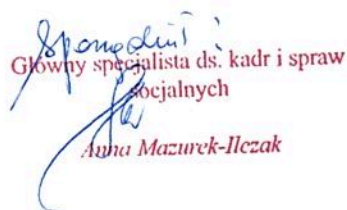 Sporządził:
Główny specjalista ds. kadr i spraw
socjalnych
Anna Mazurek-Ilczak